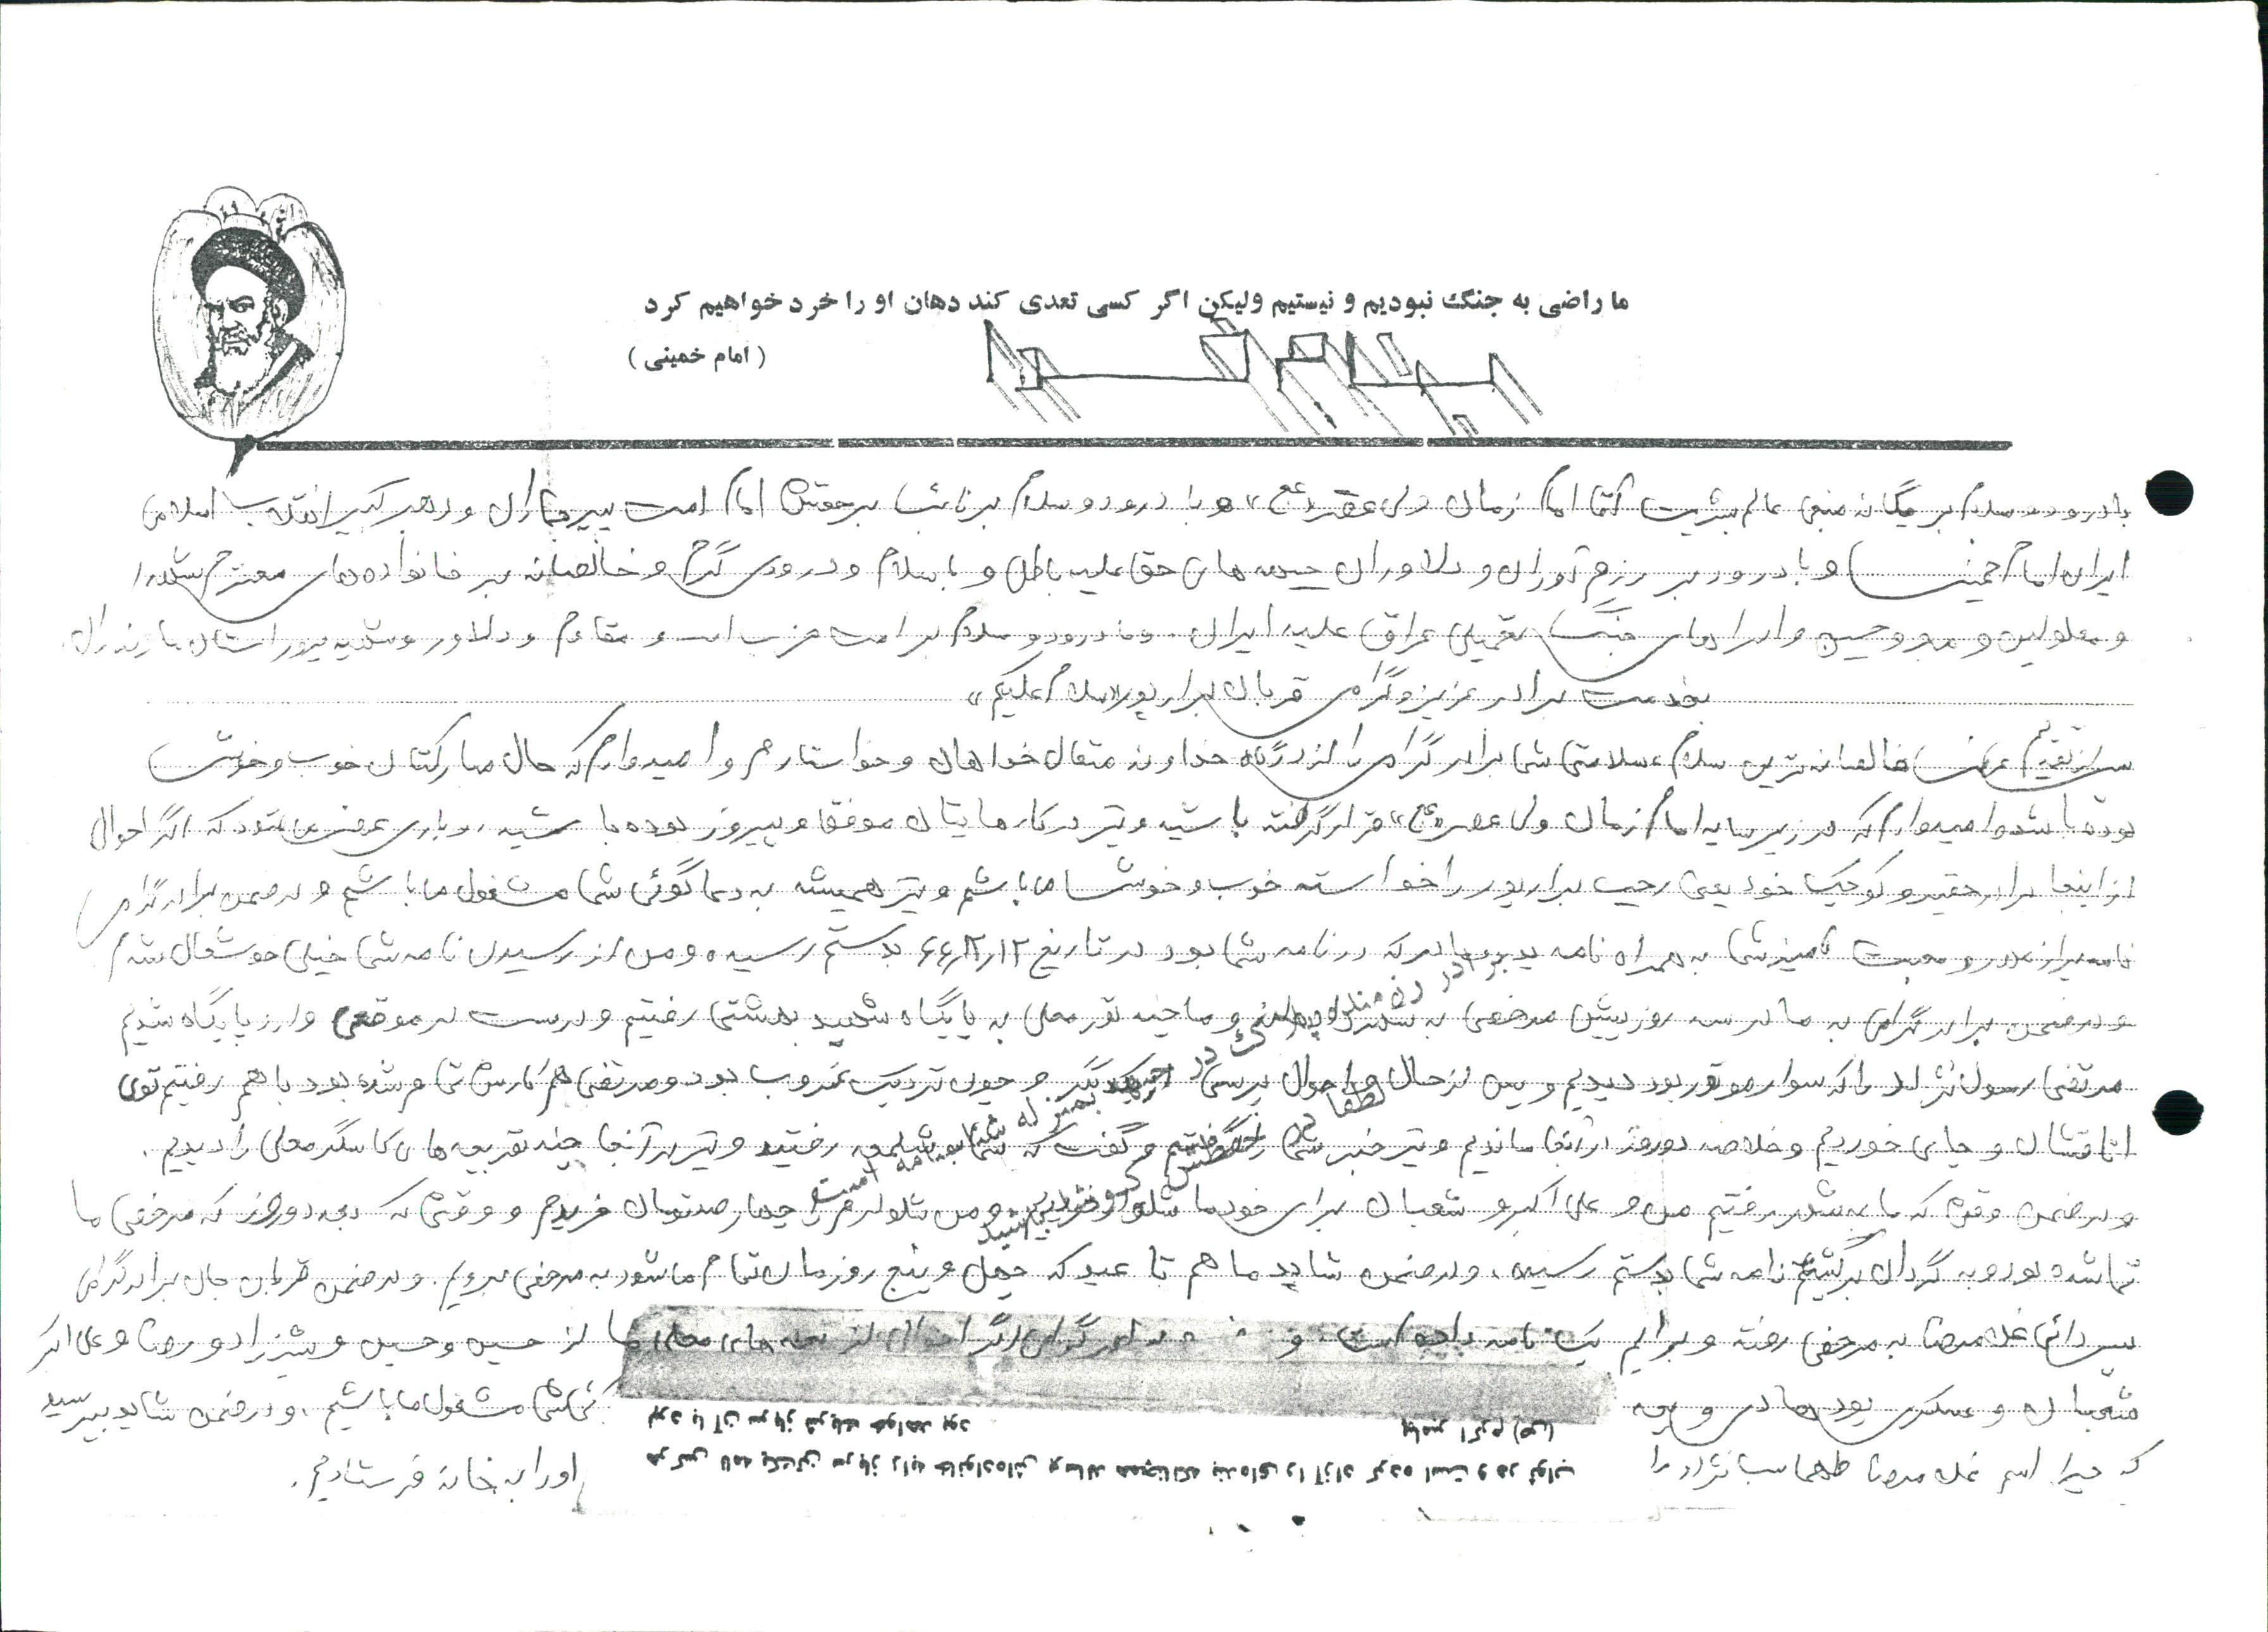 ما راضی به جنگ نبودیم و نیستیم ولیکن اگر کسی تعدی کند دهان او را خرد خواهیم کرد
(امام خمینی)
با درود و سلام بر یگانه منجی عالم بشریت آقا امام زمان ولی عصر (عج) و با درود و سلام بر نائب برحقش امام امت پیر جماران و رهبر کبیر انقلاب اسلامی
ایران امام خمینی و با درود بر رزم آوران و دلاوران جبهه های حق علیه باطل و با سلام و درودی گرم و خالصانه بر خانواده های معترم شهدا
و معلولین و مجروحین و اسرا های جنگ تحمیلی عراق علیه ایران. و با درود و سلام بر امت حزب ا... و مقاوم و دلاور و شهید پرور استان مازندران
بخدمت برادر عزیز و گرامی قربان برارپور «سلام علیکم»
پس از تقدیم عرض خالصانه ترین سلام، سلامتی شما برادر گرامی را از درگاه خداوند متعال خواهان و خواستارم و امیدوارم که حال مبارکتان خوب و خوش
بوده باشد و امیدوارم که در زیر سایه امام زمان ولی عصر «عج» قرار گرفته باشید و نیز در کارهایتان موفق و پیروز بوده باشید. و باری عرض می شود که اگر احوال
از اینجا برادر حقیر و کوچک خود یعنی رجب برارپور را خواسته خوب و خوش می باشم و نیز همیشه به دعا گوئی شما مشغول می باشم و در ضمن برادر گرامی
نامه پر از مهر و محبت آمیز شما به همراه نامه پدر و مادر که در نامه شما بود در تاریخ ۶۶٫۱۲٫۱۲ بدستم رسیده و من از رسیدن نامه شما خیلی خوشحال شدم
و در ضمن برادر گرامی به ما در سه روز پیش مرخصی به شهر و ما چند نفر محلی به پایگاه شهید بهشتی رفتیم و درست در موقعی وارد پایگاه شدیم
مرتضی رسول نژاد را که سوار موتور بود دیدیم و پس از حال و احوال پرسی از یکدیگر و چون نزدیک غروب بود و مرتضی هم کارش تمام شده بود با هم رفتیم توی
اتاقشان و چای خوردیم و خلاصه دو روز در آنجا ماندیم و نیز خبر شما را گرفتیم و گفت که شما به شلمچه رفتید و نیز در آنجا چند تفر بچه های کاسگر محلی را دیدیم.
و در ضمن وقتی که ما به شهر رفتیم من و علی اکبر و شعبان برای خود ما شلوار خریدیم و من شلوارم را چهار صد تومان خریدم و وقتی که بعد دو روز که مرخصی ما
تما شده بود و به گردان برگشتیم نامه شما بدستم رسید. و در ضمن شاید ما هم تا عید که چهل و پنج روزمان تمام ما شود به مرخصی برویم. و در ضمن قربان جان برادر گرامی
پسر دائی غلامرضا به مرخصی رفته و برایم یک نامه داده است. و برادر گرامی اگر احوال از بچه های محلی ما از حسین و حسن و شیرزاد و رضا و علی اکبر
شعبان و عسکری پور هادی و بچه مشغول ما باشیم. و در ضمن شاید بپرسید
که چرا اسم غلامرضا طهماسب نژاد را او را به خانه فرستادیم.
لطفا در
پشت
هر کس نامه یک سرباز را به خانواده‌اش برساند همچنانکه بنده‌ای را آزاد کرده است و در ثواب
نبرد با آن سرباز شریک خواهد بود
پیامبر اکرم (ص)